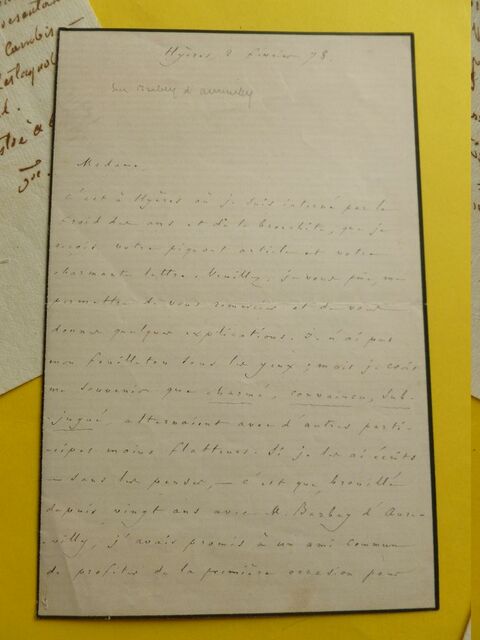 resentan
Cambis
d.
Hyères, 2 février 78.
sur Barbey d'aurevilly
Madame,
C'est à Hyères où je suis interné par le
froid des ans et de la bronchite, que je
reçois votre piquant article et votre
charmante lettre. Veuillez, je vous prie, me
permettre de vous remercier et de vous
donner quelques explications. Je n'ai pas
mon feuilleton sous les yeux ; mais je crois
me souvenir que charmé, convaincu, sub-
jugué, alternaient avec d'autres parti-
cipes moins flatteurs. Si je les ai écrits
– sans les penser, – c'est que, brouillé
depuis vingt ans avec M. Barbey d'Aure-
villy, j'avais promis à un ami commun
de profiter de la première occasion pour